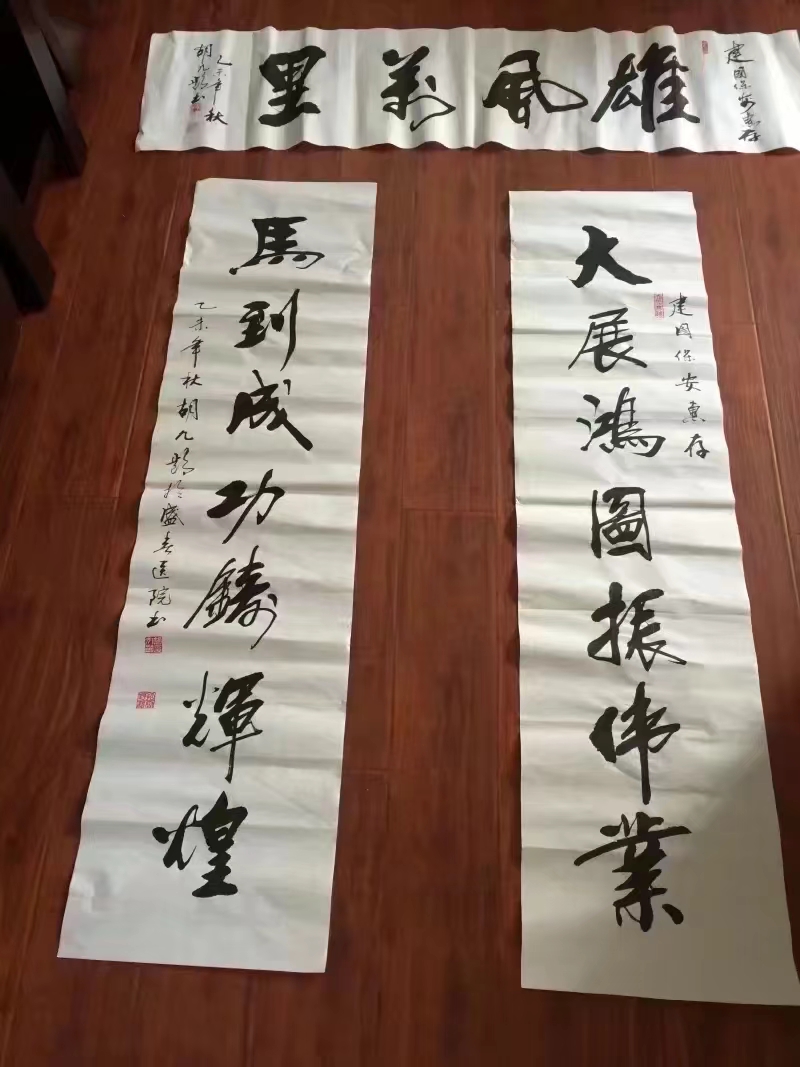 建國保安惠存
雄風萬里
乙未年秋
胡九龄书
建國保安惠存
大展鴻圖振偉業
馬到成功鑄輝煌
乙未年秋胡九龄於盛春医院书